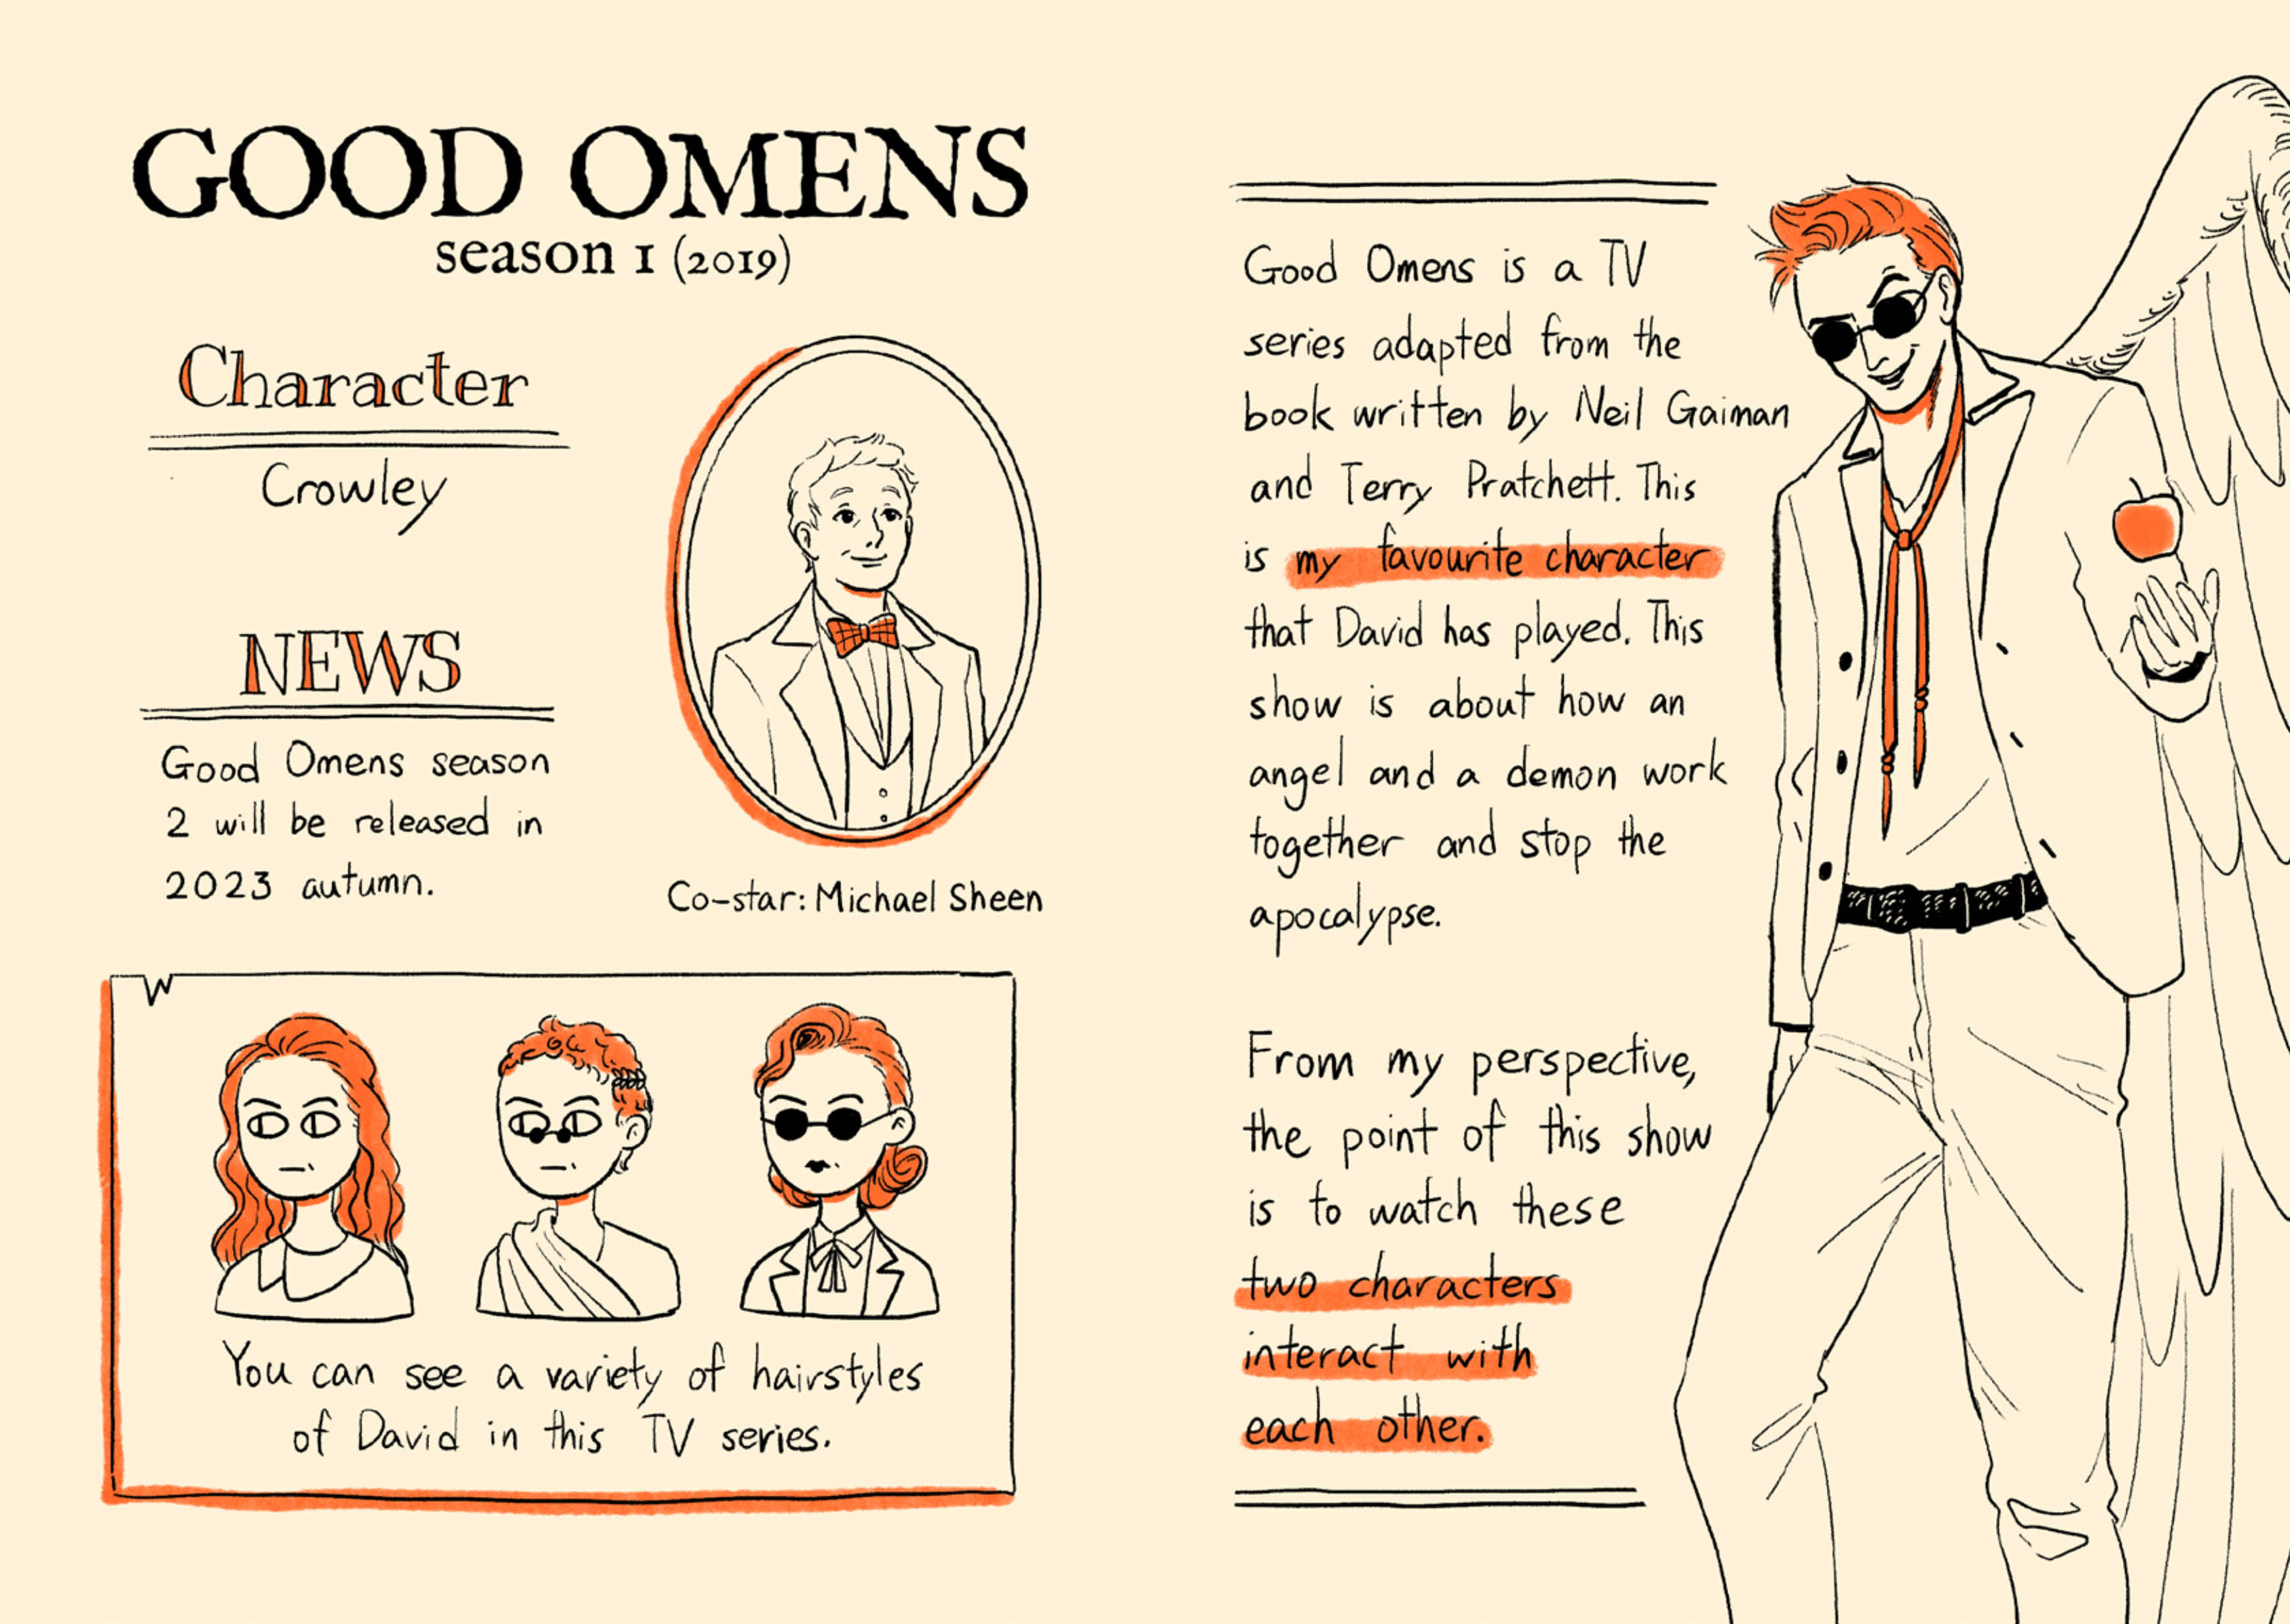 GOOD OMENS
season 1 (2019)
Character
Crowley
NEWS
Good Omens season
2 will be released in
2023 autumn.
Co-star: Michael Sheen
You can see a variety of hairstyles
of David in this TV series.
Good Omens is a TV
series adapted from the
book written by Neil Gaiman
and Terry Pratchett. This
is my favourite character
that David has played. This
show is about how an
angel and a demon work
together and stop the
apocalypse.
From my perspective,
the point of this show
is to watch these
two characters
interact with
each other.